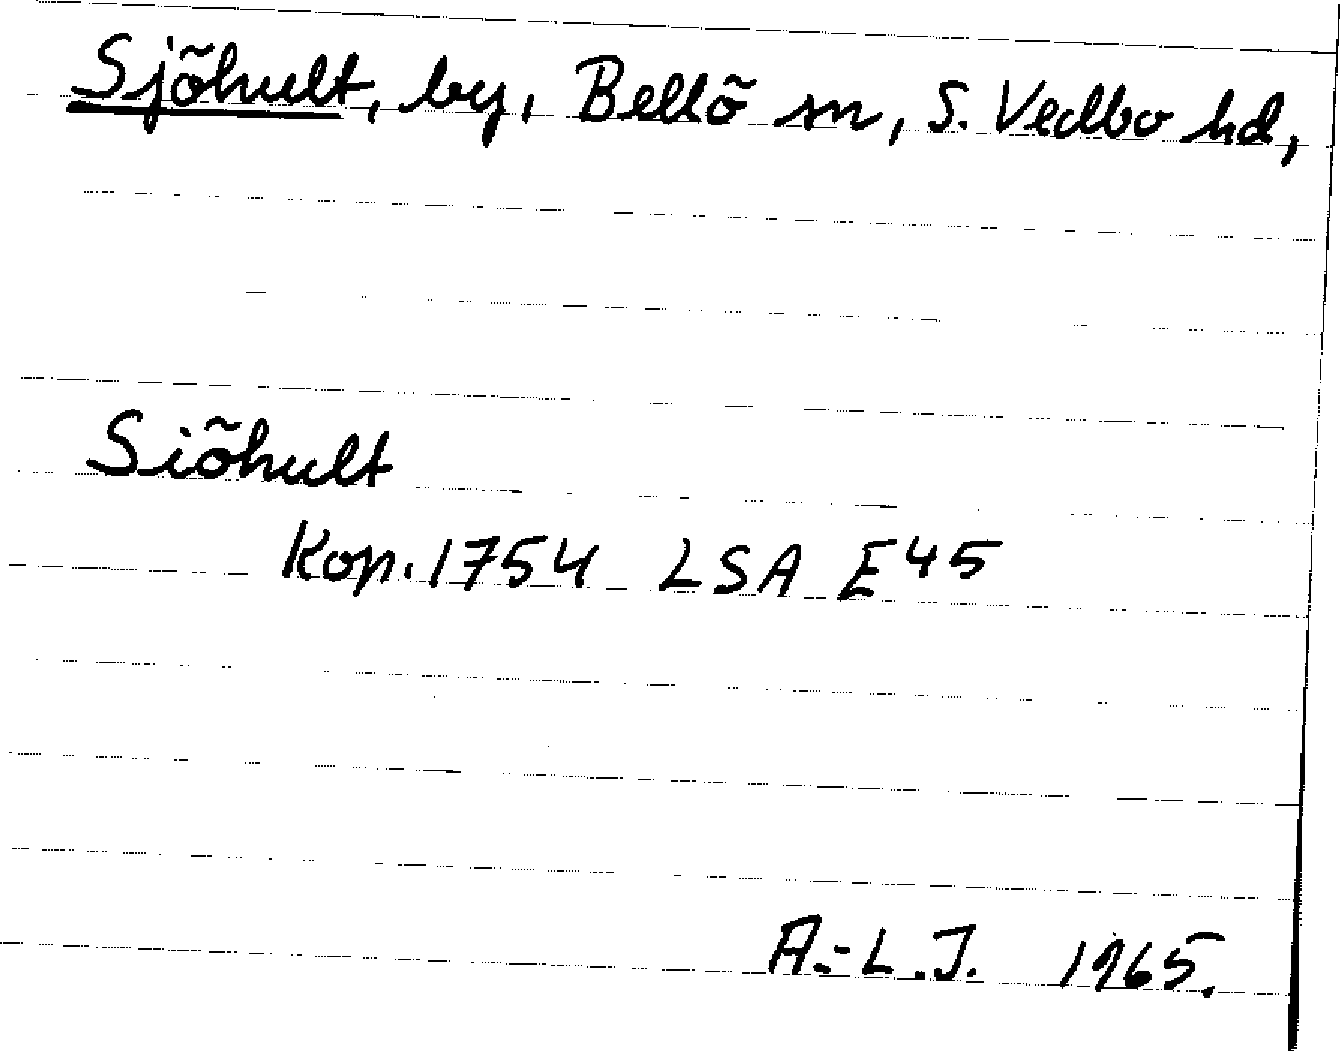 Sjöhult, by, Bellö sn, S. Vedbo hd,
Siöhult
Kop. 1754 LSA E45
A.-L.J. 1965.